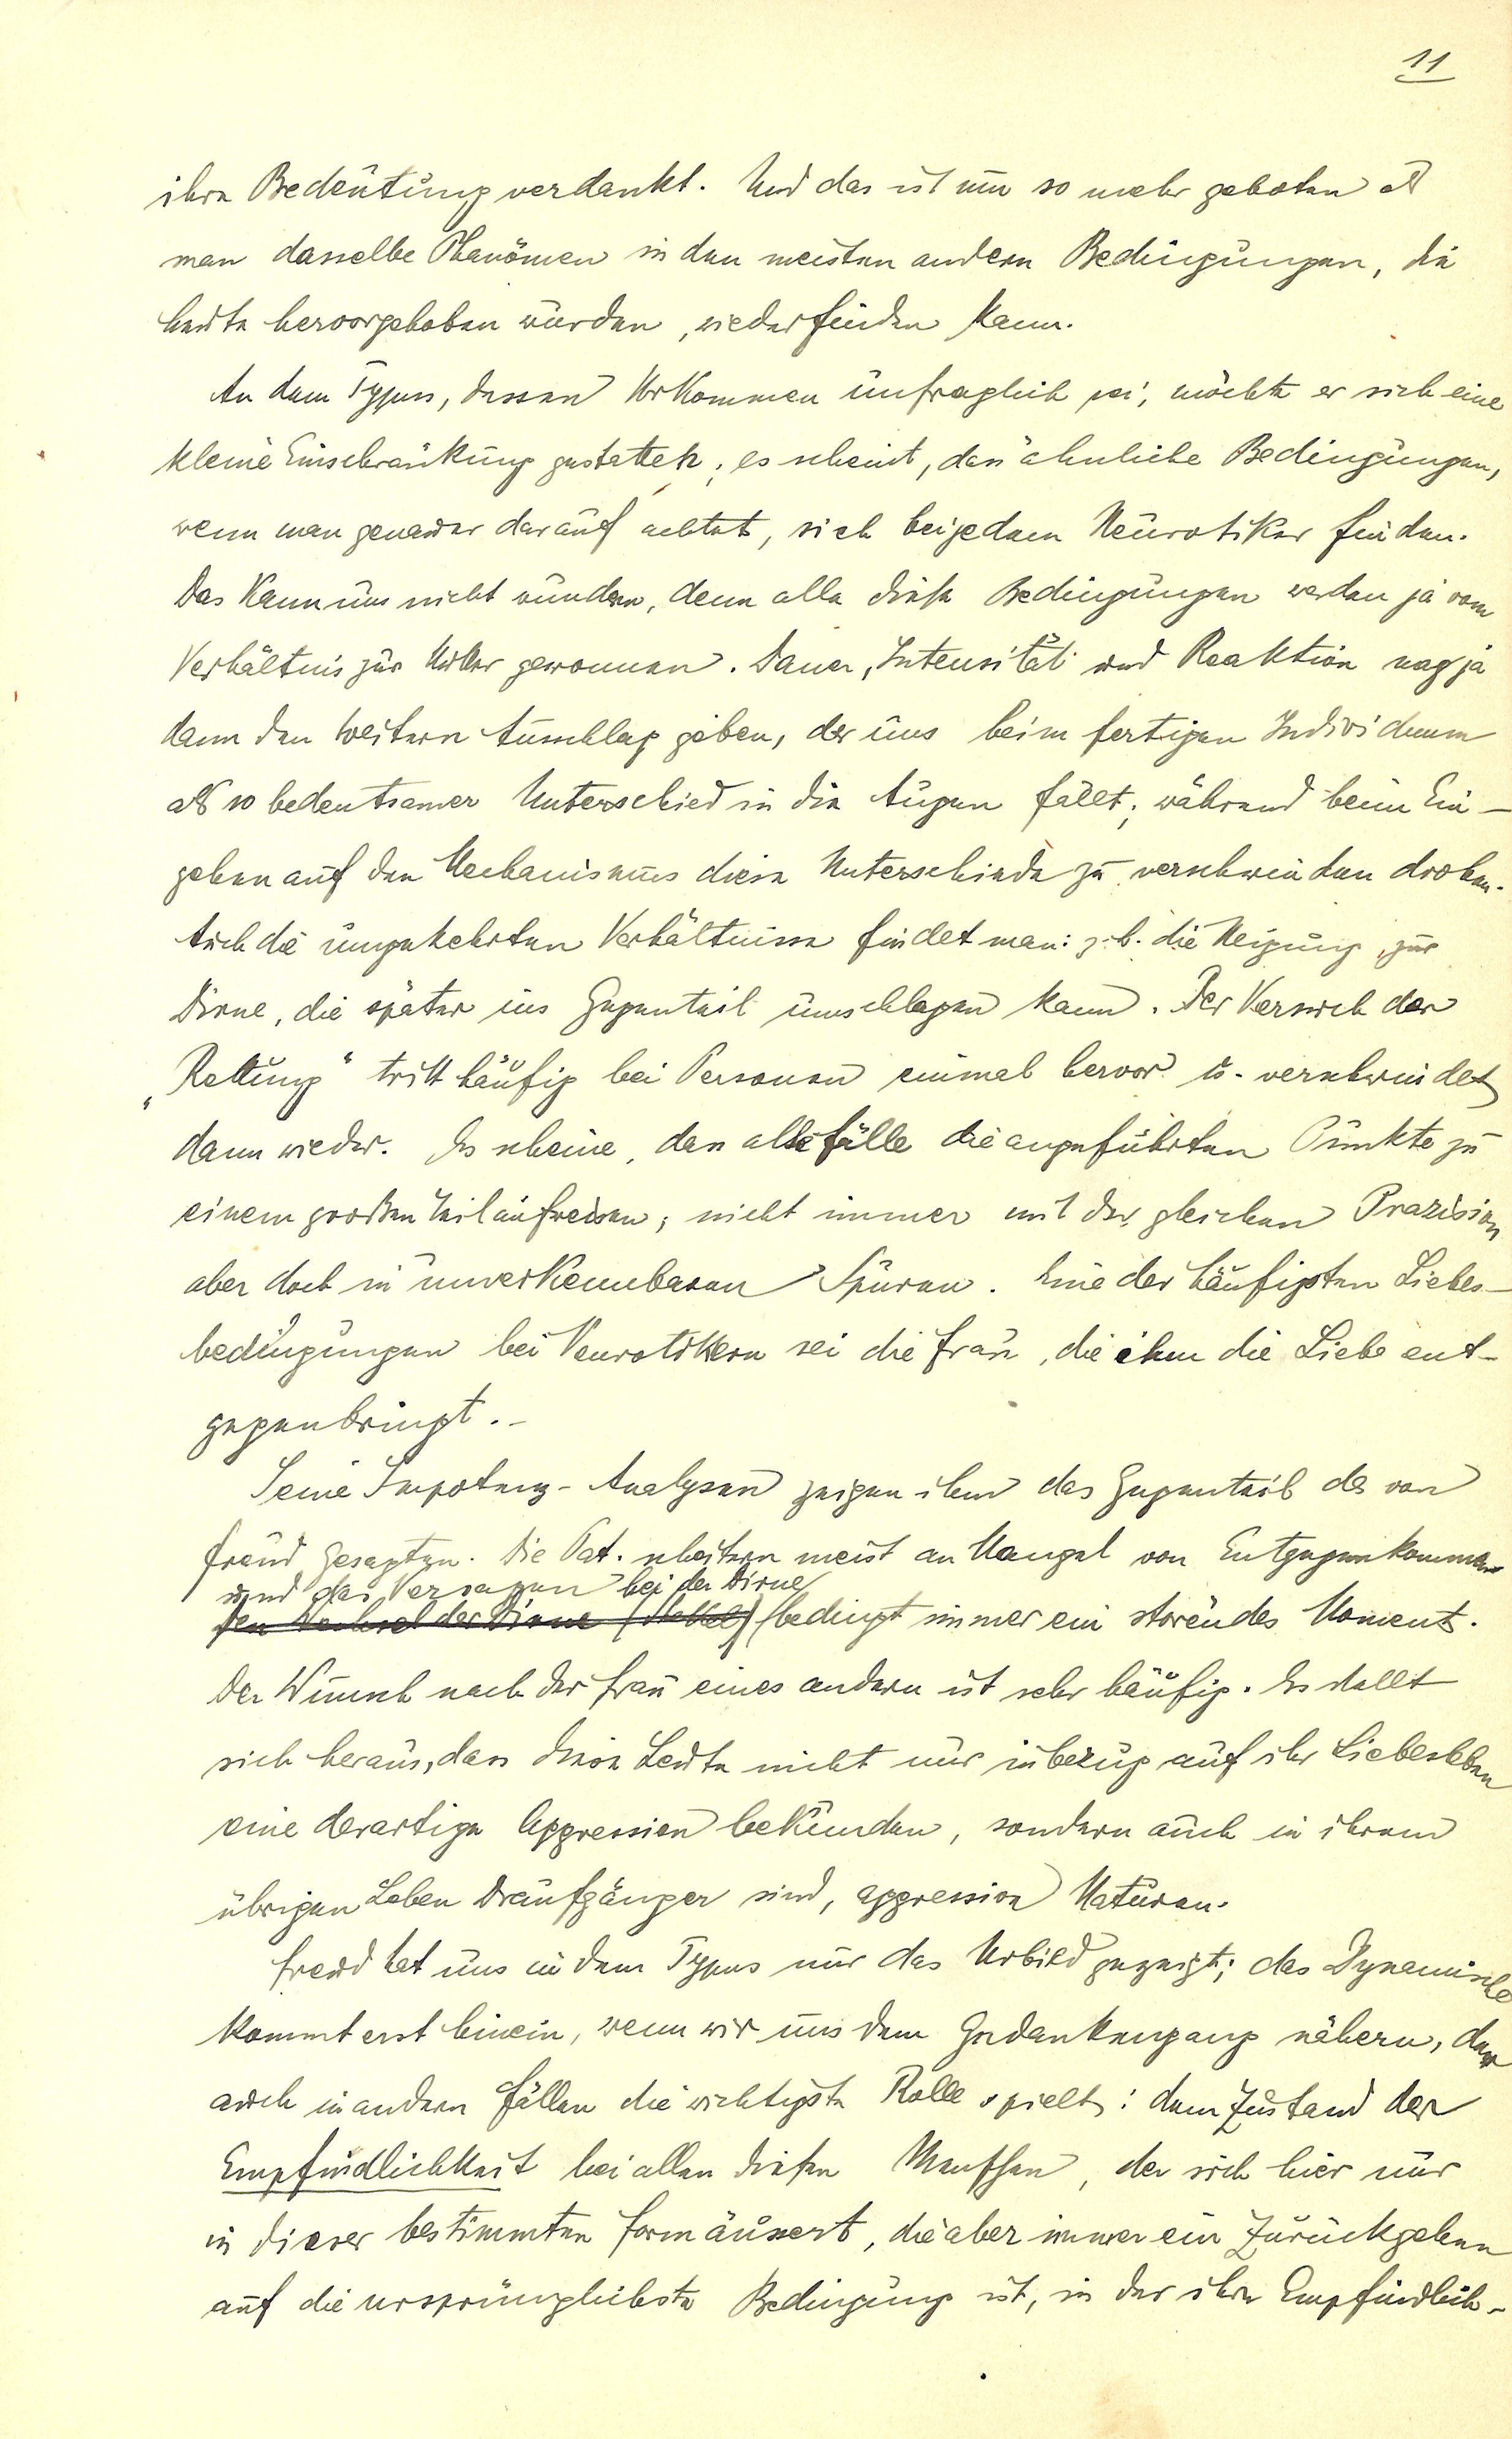 11
ihre Bedeutung verdankt. Und das ist um so mehr geboten als
man dasselbe Phänomen in den meisten andern Bedingungen, die
heute hervorgehoben wurden, wiederfinden kann.
An dem Typus, dessen Vorkommen unfraglich sei, möchte er sich eine
kleine Einschränkung gestatten; es scheint, dass ähnliche Bedingungen,
wenn man genauer darauf achtet, sich bei jedem Neurotiker finden.
Das kann uns nicht wundern, denn alle diese Bedingungen werden ja vom
Verhältnis zur Mutter gewonnen. Dauer, Intensität und Reaktion mag ja
dann den weitern Ausschlag geben, der uns beim fertigen Individuum
als so bedeutsamer Unterschied in die Augen fällt; während beim Ein-
gehen auf den Mechanismus diese Unterschiede zu verschwinden drohen.
Auch die umgekehrten Verhältnisse findet man: z. b. die Neigung zur
Dirne, die später ins Gegenteil umschlagen kann. Der Versuch der
„Rettung“ tritt häufig bei Personen einmal hervor u. verschwindet
dann wieder. Es scheine, dass alle Fälle die angeführten Punkte zu
einem großen Teil aufweisen; nicht immer mit der gleichen Präzision
aber doch in unverkennbaren Spuren. Eine der häufigsten Liebes-
bedingungen bei Neurotikern sei die Frau, die ihm die Liebe ent-
gegenbringt.-
Seine Impotenz-Analysen zeigen ihm das Gegenteil des von
Freud Gesagten. Die Pat. scheitern meist an Mangel von Entgegenkommen
und das Versagen bei der Dirne
den Wechsel der Dirne (Stekel) bedingt immer ein störendes Moment.
Der Wunsch nach der Frau eines andern ist sehr häufig. Es stellt
sich heraus, dass diese Leute nicht nur inbezug auf ihr Liebesleben
eine derartige Aggression bekunden, sondern auch in ihrem
übrigen Leben Draufgänger sind, aggressive Naturen.
Freud hat uns in dem Typus nur das Urbild gezeigt; das Dynamische
kommt erst hinein, wenn wir uns dem Gedankengang nähern, der
auch in andern Fällen die wichtigste Rolle spielt: dem Zustand der
Empfindlichkeit bei allen diesen Menschen, der sich hier nur
in dieser bestimmten Form äussert, die aber immer ein Zurückgehen
auf die ursprünglichste Bedingung ist, in der ihre Empfindlich-